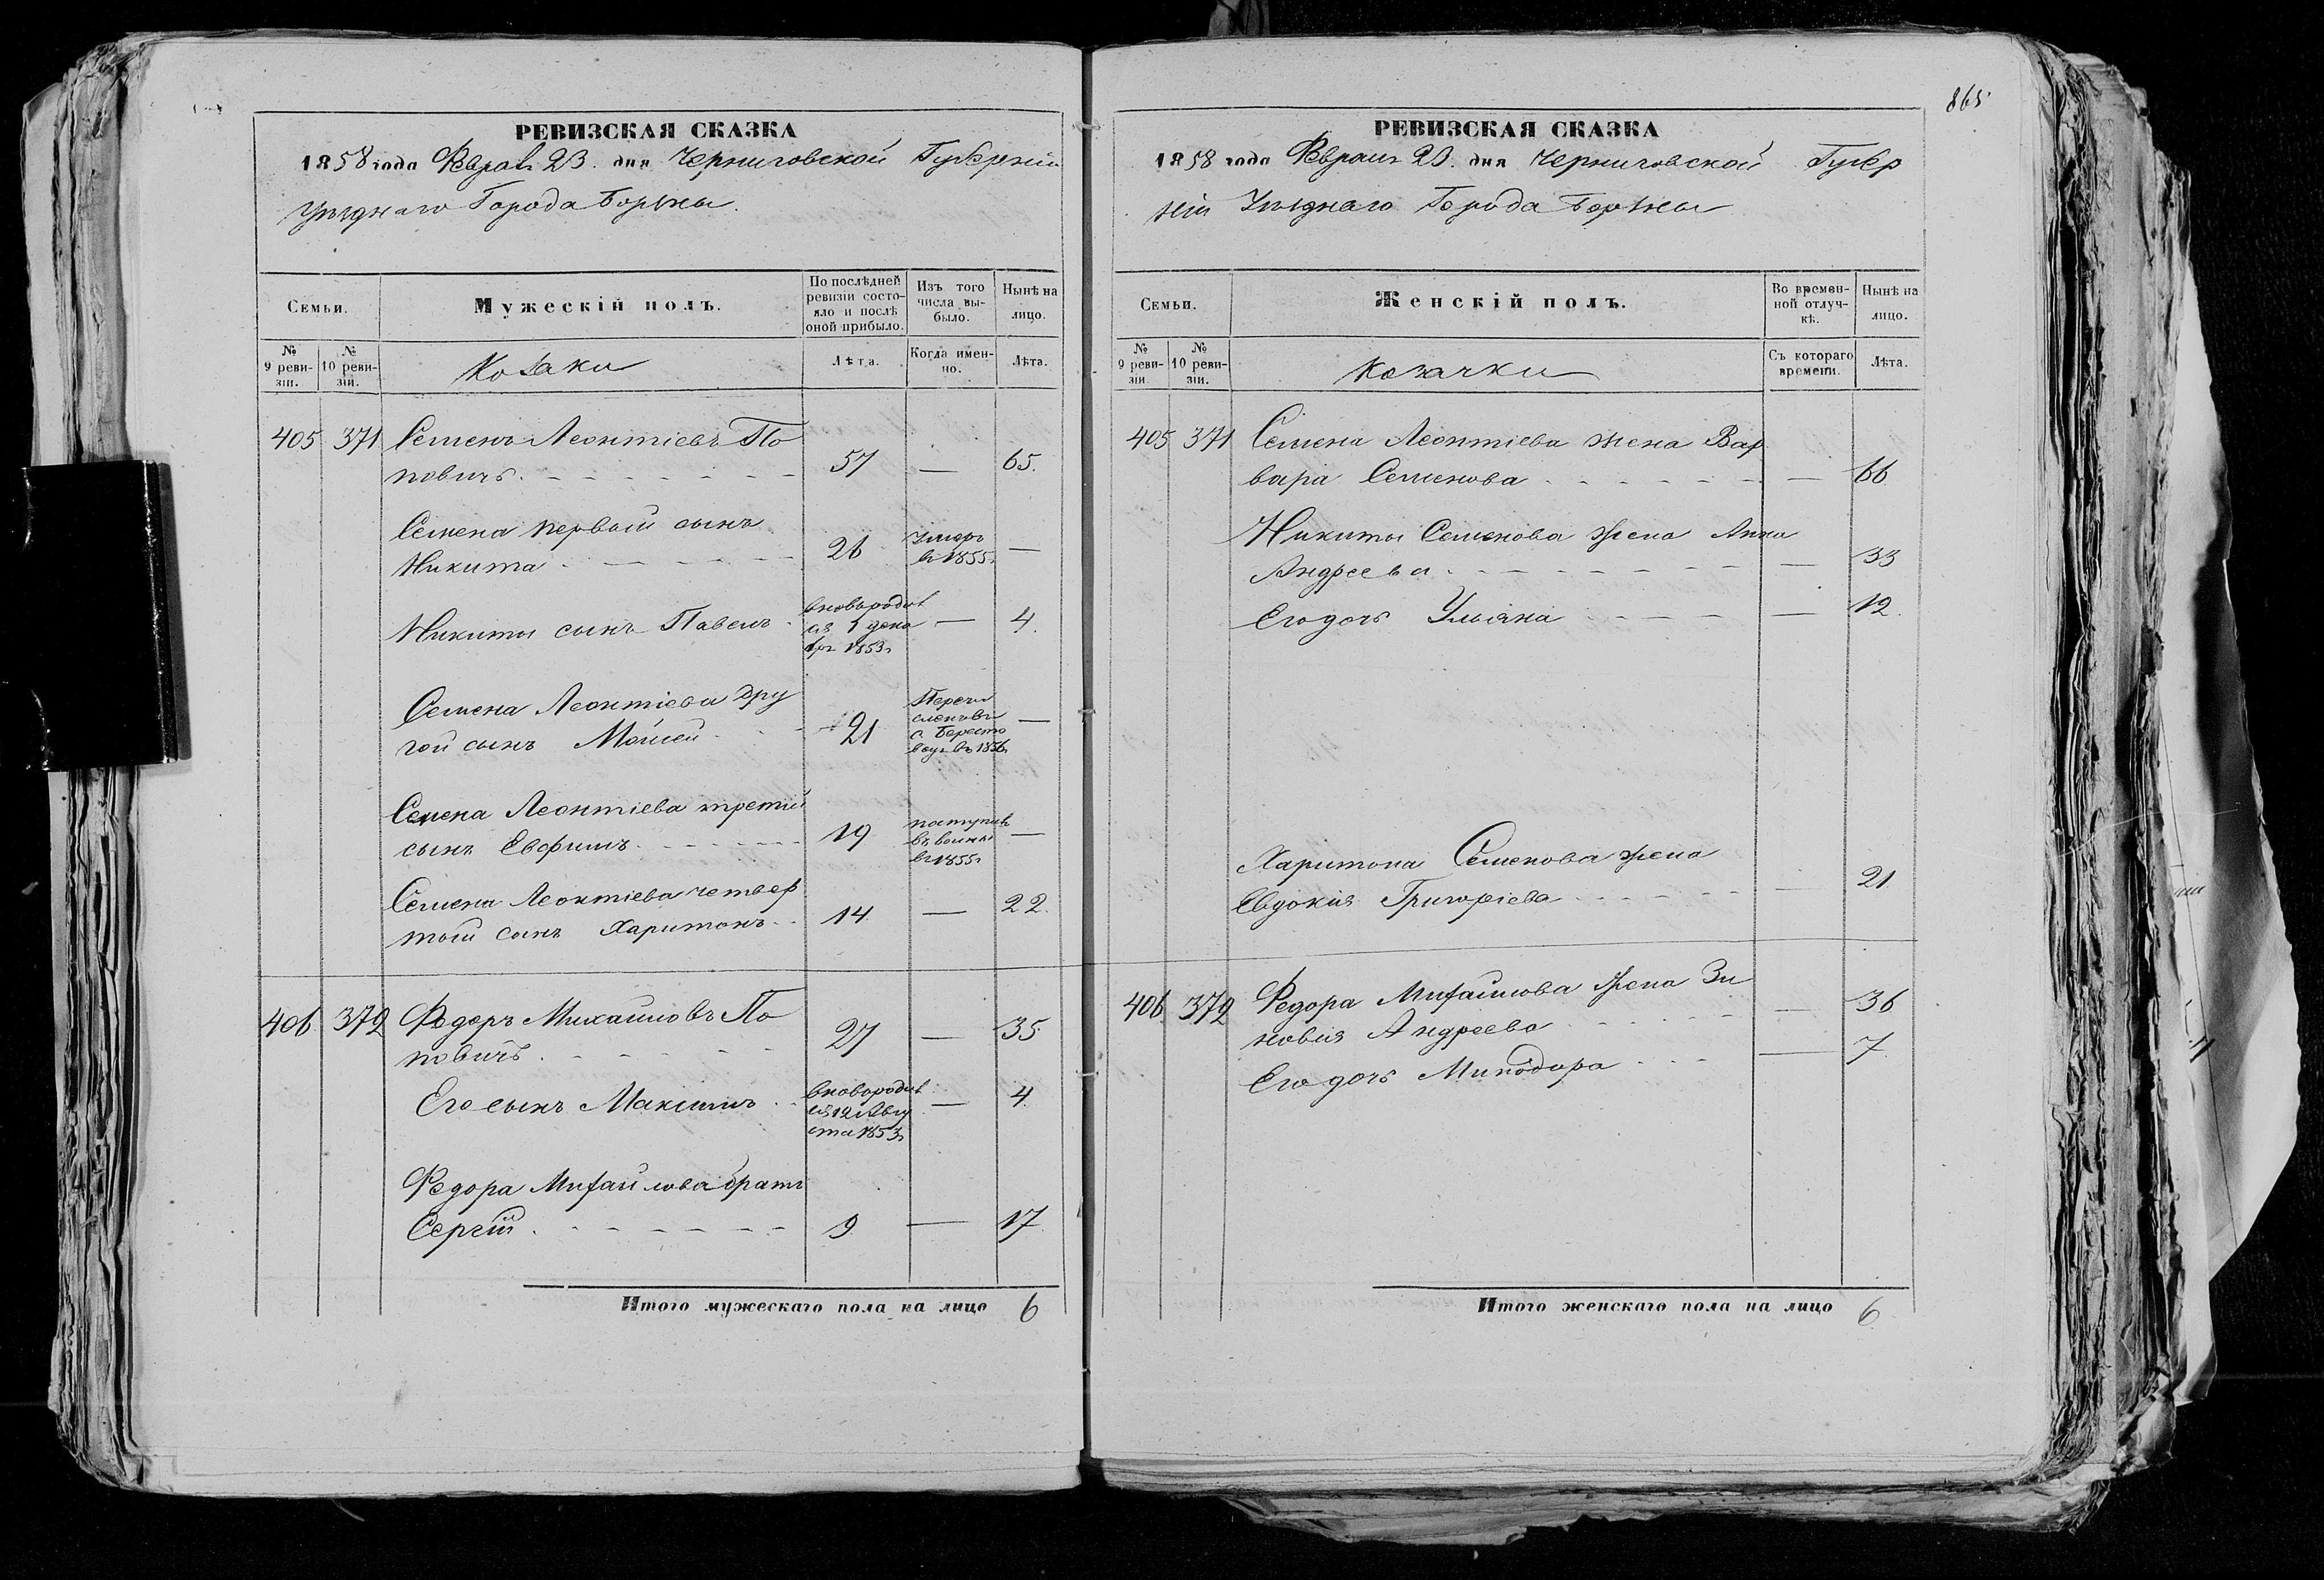 865
РЕВИЗСКАЯ СКАЗКА
1858 года Феврал 23. дня Черниговской Губерніи
Уѣзднаго Города Борзны.
Семьи.
Мужескій полъ.
По послѣдней ревизіи состояло и послѣ оной прибыло.
Изъ того числа выбыло.
Нынѣ на лицо.
№ 9 ревизіи.
№ 10 ревизіи.
Козаки
Лѣта.
Когда именно.
Лѣта.
405 371 Семенъ Леонтіевъ По
повичъ. 57 — 65.
Семена первый сынъ
Никита 26 умеръ в 1855г —
Никиты сынъ Павелъ вновьродил
ся 1 дека
бря 1853г — 4.
Семена Леонтіева дру
гой сынъ Моисей 21 Перечи
сленъ въ
с. Бересто
вец въ 1856г —
Семена Леонтіева третій
сынъ Евфимъ 19 поступил
въ воины
в 1855г —
Семена Леонтіева четвер
тый сынъ Харитонъ 14 — 22.
406 372 Федоръ Михайловъ По
повичъ 27 — 35
Его сынъ Максимъ вновородил
ся 12 Авгу
ста 1853г — 4
Федора Михайлова братъ
Сергій 9 — 17
Итого мужескаго пола на лицо 6
РЕВИЗСКАЯ СКАЗКА
1858 года Феврал 23. дня Черниговской Губер
ніи Уѣзднаго Города Борзны
Семьи.
Женскій полъ.
Во временной отлучкѣ.
Нынѣ на лицо.
№ 9 ревизіи
№ 10 ревизіи.
Козачки
Съ котораго времени.
Лѣта.
405 371 Семена Леонтіева жена Вар
вара Семенова — 66
Никиты Семенова жена Анна
Андреева — 33
Его дочь Ульяна — 12.
Харитона Семенова жена
Евдокія Григоріева — 21
406 372 Федора Михайлова жена Зи
новія Андреева — 36
Его дочь Минодора — 7
Итого женскаго пола на лицо 6